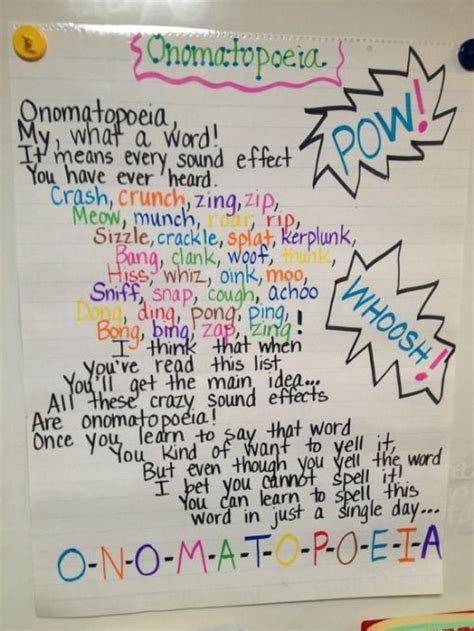 Onomatopoeia
Onomatopoeia,
My, what a word!
It means every sound effect
You have ever heard.
POW!
Crash, crunch, zing, zip,
Meow, munch, roar, rip,
Sizzle, crackle, splat, kerplunk,
Bang, clank, woof, thunk,
Hiss, whiz, oink, moo,
Sniff, snap, cough, achoo
Dong, ding, pong, ping,
Bong, bing, zap, zing!
WHOOSH!
I think that when
You've read this list,
You'll get the main idea...
All these crazy sound effects
Are onomatopoeia!
Once you learn to say that word
You kind of want to yell it,
But even though you yell the word
I bet you cannot spell it!
You can learn to spell this
word in just a single day...
O-N-O-M-A-T-O-P-O-E-I-A